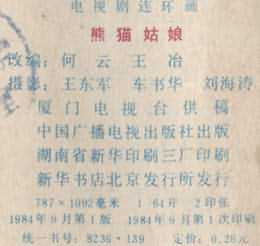 电视剧连环画
熊猫姑娘
改编：何云 王冶
摄影：王东军 车书华 刘海涛
厦门电视台供稿
中国广播电视出版社出版
湖南省新华印刷三厂印刷
新华书店北京发行所发行
787×1092毫米 1/64开 2印张
1984年9月第1版 1984年9月第1次印刷
统一书号：8236·139 定价：0.28元